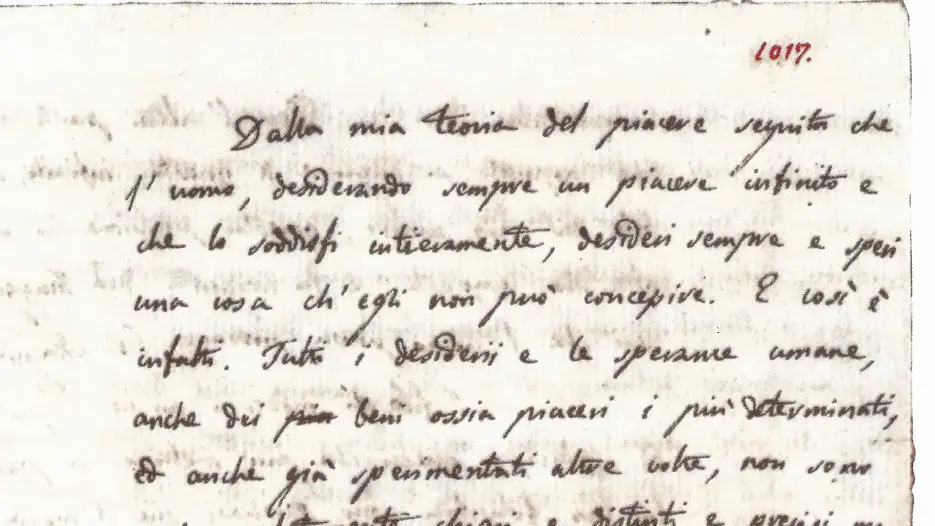 1017.
Dalla mia teoria del piacere seguita che
l'uomo, desiderando sempre un piacere infinito e
che lo soddisfi intieramente, desideri sempre e speri
una cosa ch'egli non può concepire. E così è
infatti. Tutti i desiderii e le speranze umane,
anche dei più beni ossia piaceri i più determinati,
ed anche già sperimentati altre volte, non sono
chiari e distinti e precisi